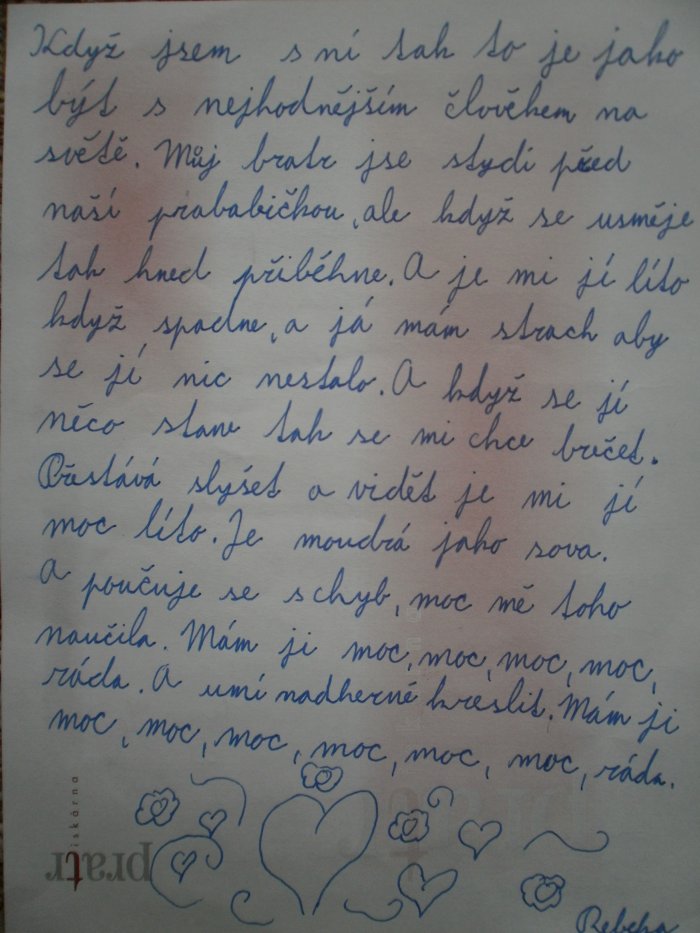 Když jsem s ní tak to je jako
být s nejhodnějším člověkem na
světě. Můj bratr jse stydí před
naší prababičkou, ale když se usměje
tak hned přiběhne. A je mi jí líto
když spadne, a já mám strach aby
se jí nic nestalo. A když se jí
něco stane tak se mi chce brečet.
Přestává slyšet a vidět je mi jí
moc líto. Je moudrá jako sova.
A poučuje se s chyb, moc mě toho
naučila. Mám ji moc, moc, moc, moc,
ráda. A umí nadherně kreslit. Mám ji
moc, moc, moc, moc, moc, moc, ráda.
tiskárna
pratr
Rebeka